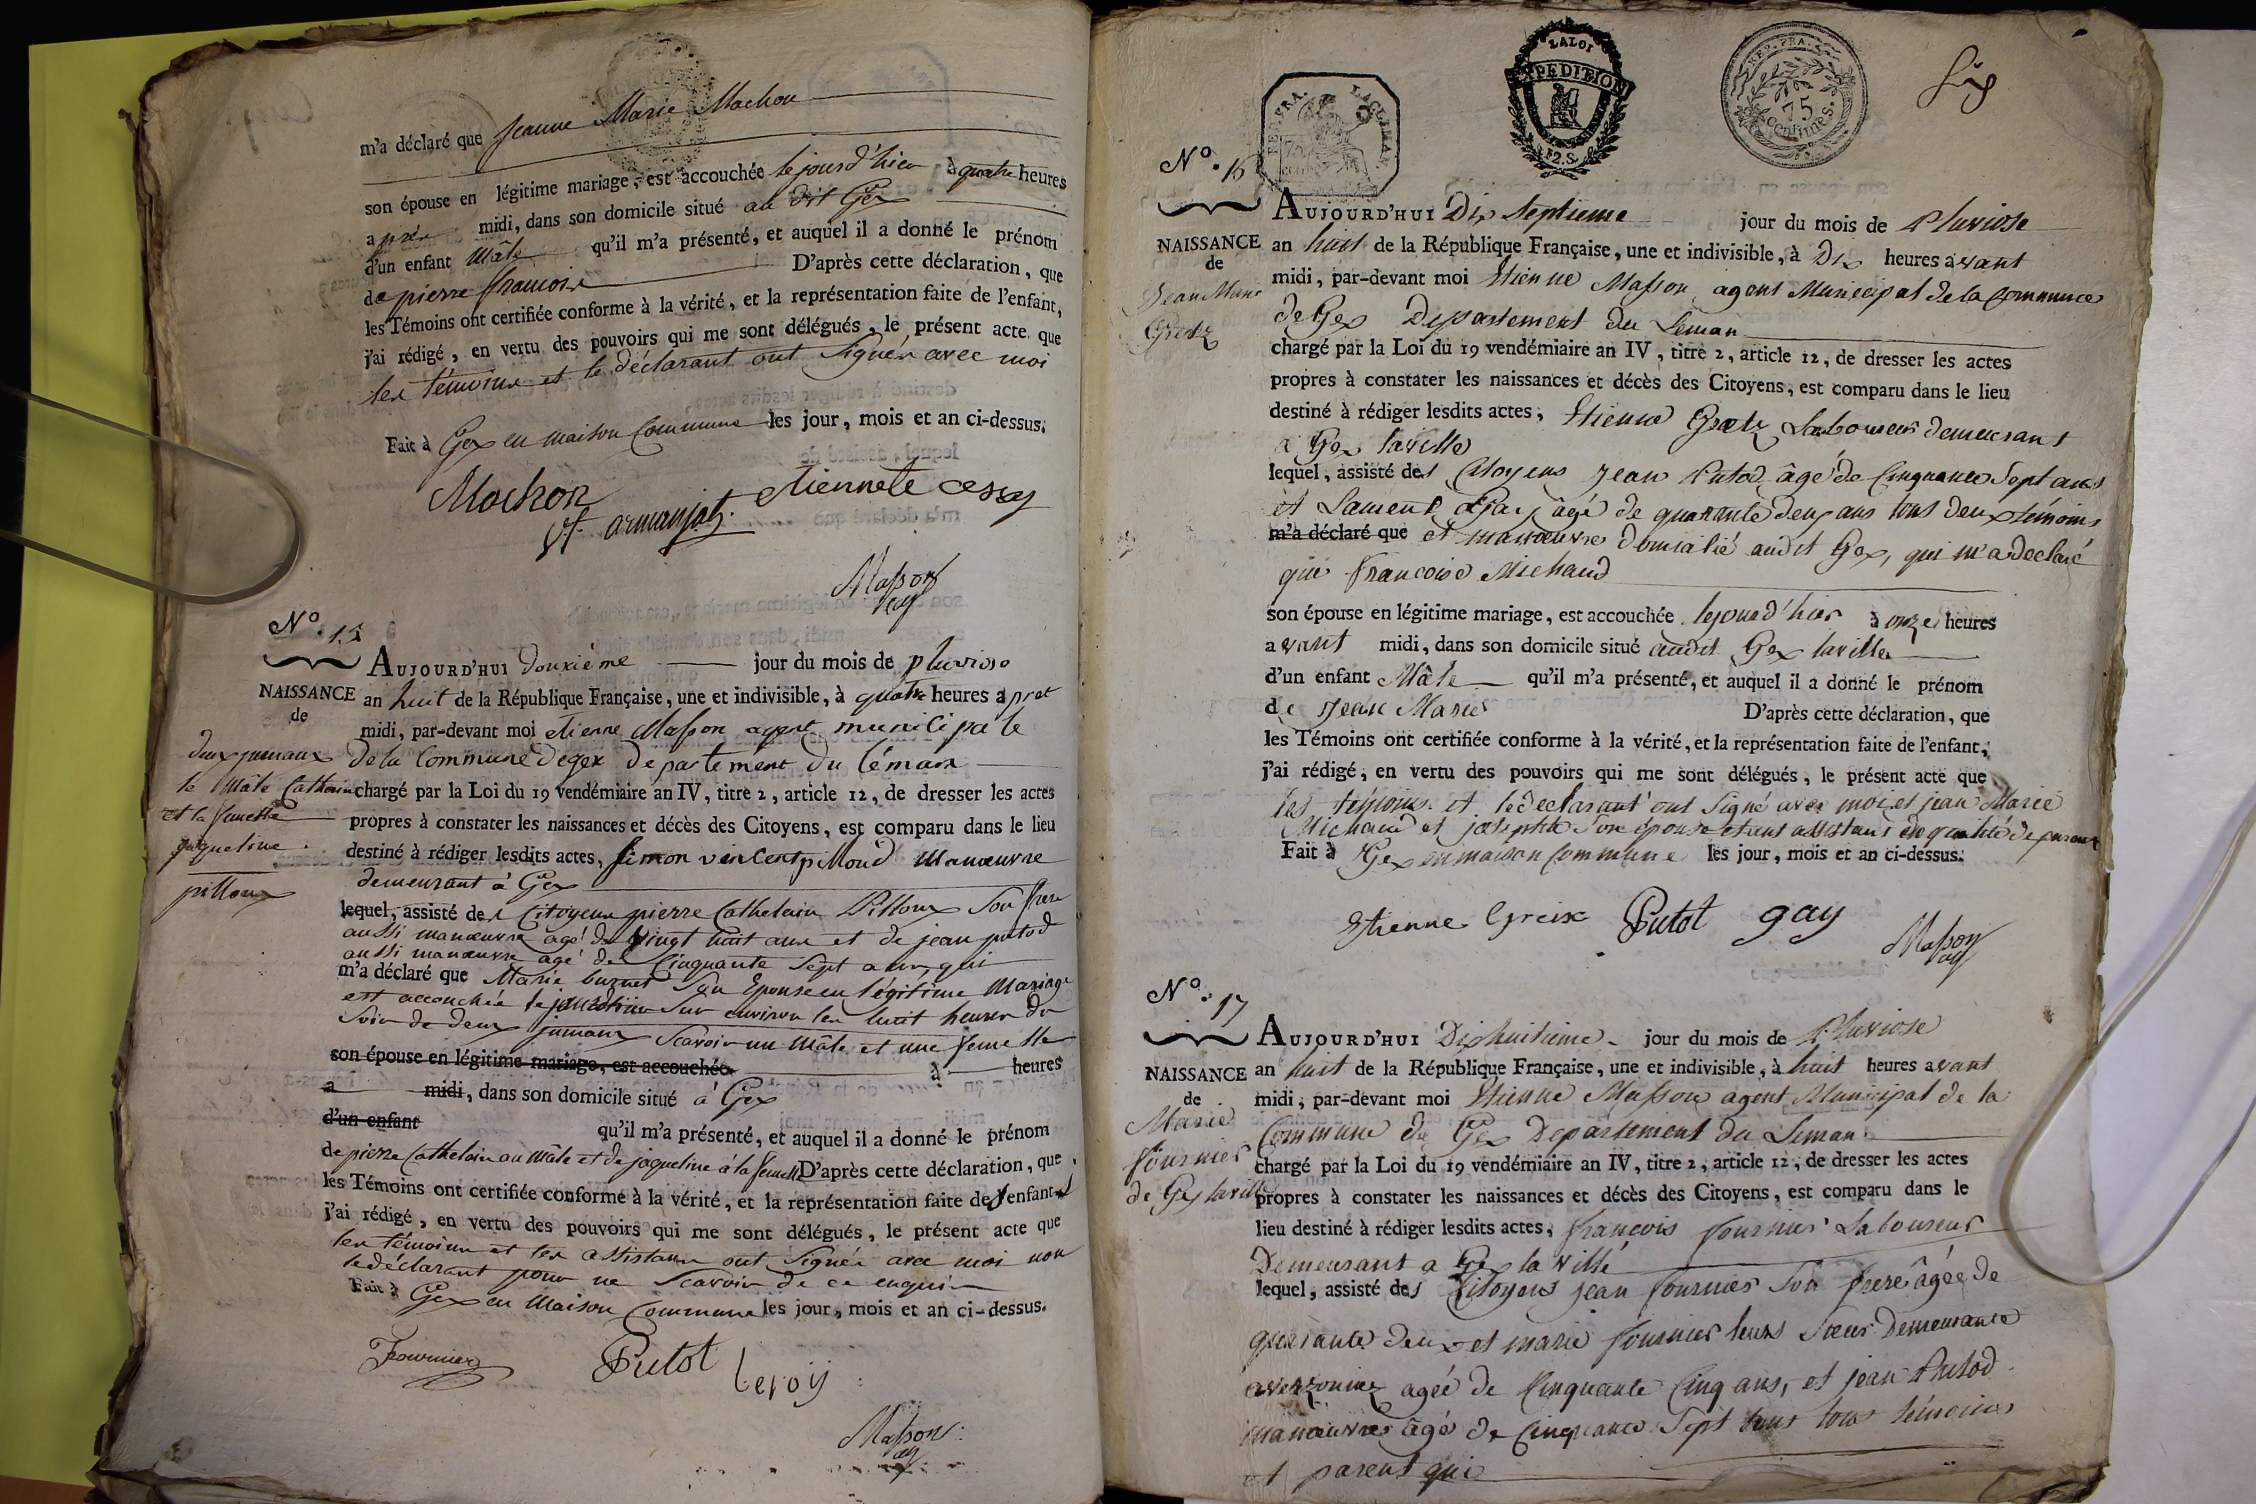 m'a déclaré que Jeanne Marie Machon
son épouse en légitime mariage, est accouchée le jourd'hier à quatre heures
après midi, dans son domicile situé au dit Gex
d'un enfant Mâle qu'il m'a présenté, et auquel il a donné le prénom
de pierre francois D'après cette déclaration, que
les Témoins ont certifiée conforme à la vérité, et la représentation faite de l'enfant,
j'ai rédigé, en vertu des pouvoirs qui me sont délégués, le présent acte que
les témoins et le déclarant ont Signés avec moi
Fait à Gex en maison Commune les jour, mois et an ci-dessus.
Machon
armanjat
etiennete
Masson
ag
N°. 15
AUJOURD'HUI Douxième jour du mois de pluviose
NAISSANCE
de
deux jumaux
le Mâle Cathelain
et la femelle
jaqueline
pilloux
an huit de la République Française, une et indivisible, à quatre heures apret
midi, par-devant moi etienne Masson agent municipale
de la Commune de gex departement du léman
chargé par la Loi du 19 vendémiaire an IV, titre 2, article 12, de dresser les actes
propres à constater les naissances et décès des Citoyens, est comparu dans le lieu
destiné à rédiger lesdits actes, Simon vincent pilloud Manœuvre
demeurant à Gex
lequel, assisté des Citoyens pierre Cathelain Pilloux Son frere
aussi manœuvre agé de vingt huit ans et de jean putod
aussi manœuvre agé de Cinquante Sept ans, qui
m'a déclaré que Marie burnet Son Epouse en légitime Mariage
est accouchée le jourdhier Sur environ les huit heures du
Soir de deux jumaux Scavoir un Mâle et une femelle
son épouse en légitime mariage, est accouchée à heures
a midi, dans son domicile situé à Gex
d'un enfant qu'il m'a présenté, et auquel il a donné le prénom
de pierre Cathelain au Mâle et de jaqueline à la femelle D'après cette déclaration, que
les Témoins ont certifiée conforme à la vérité, et la représentation faite des enfants
j'ai rédigé, en vertu des pouvoirs qui me sont délégués, le présent acte que
les témoins et les assistans ont Signés avec moi non
le déclarant pour ne Scavoir de ce enquis
Fait à Gex en Maison Commune les jour, mois et an ci-dessus.
Fournier
Putot
Leroy
Masson
ag
REP. FRA.
75
LA LOI
EXPÉDITION
REP. FRA.
75
Centimes.
Six
N°. 16
AUJOURD'HUI Dix Septieme jour du mois de Pluviose
NAISSANCE
de
Jean Marie
an huit de la République Française, une et indivisible, à Dix heures avant
midi, par-devant moi Etienne Masson agent Municipal de la Commune
de Gex Departement du Leman
chargé par la Loi du 19 vendémiaire an IV, titre 2, article 12, de dresser les actes
propres à constater les naissances et décès des Citoyens, est comparu dans le lieu
destiné à rédiger lesdits actes, Etienne Laboureur demeurant
a Gex la ville
lequel, assisté des Citoyens Jean Putod âgé de Cinquante Sept ans
et Laurent Gay âgé de quarante deux ans tous deux témoins
m'a déclaré que et manœuvres domicilié audit Gex, qui m'a declaré
que francoise Michaud
son épouse en légitime mariage, est accouchée le jourd'hier à onze heures
avant midi, dans son domicile situé audit Gex la ville
d'un enfant Mâle qu'il m'a présenté, et auquel il a donné le prénom
de Jean Marie D'après cette déclaration, que
les Témoins ont certifiée conforme à la vérité, et la représentation faite de l'enfant,
j'ai rédigé, en vertu des pouvoirs qui me sont délégués, le présent acte que
les témoins et le declarant ont Signé avec moi, et jean Marie
Michaud et Son épouse etant assistans en qualité de parent
Fait à Gex en maison Commune les jour, mois et an ci-dessus.
Etienne Greix
Putot
gay
Masson
ag
N°. 17
AUJOURD'HUI Dixhuitieme jour du mois de Pluviose
NAISSANCE
de
Marie
fournier
de Gex la ville
an huit de la République Française, une et indivisible, à huit heures avant
midi, par-devant moi Etienne Masson agent Municipal de la
Commune de Gex Departement du Leman
chargé par la Loi du 19 vendémiaire an IV, titre 2, article 12, de dresser les actes
propres à constater les naissances et décès des Citoyens, est comparu dans le
lieu destiné à rédiger lesdits actes, francois fournier Laboureur
Demeurant a Gex la ville
lequel, assisté des Citoyens jean fournier Son frere âgée de
quarante deux et marie fournier leurs Sœur Demeurante
agée de Cinquante Cinq ans, et jean Putod
manœuvres âgé de Cinquante Sept ans tous témoins
et parent qui